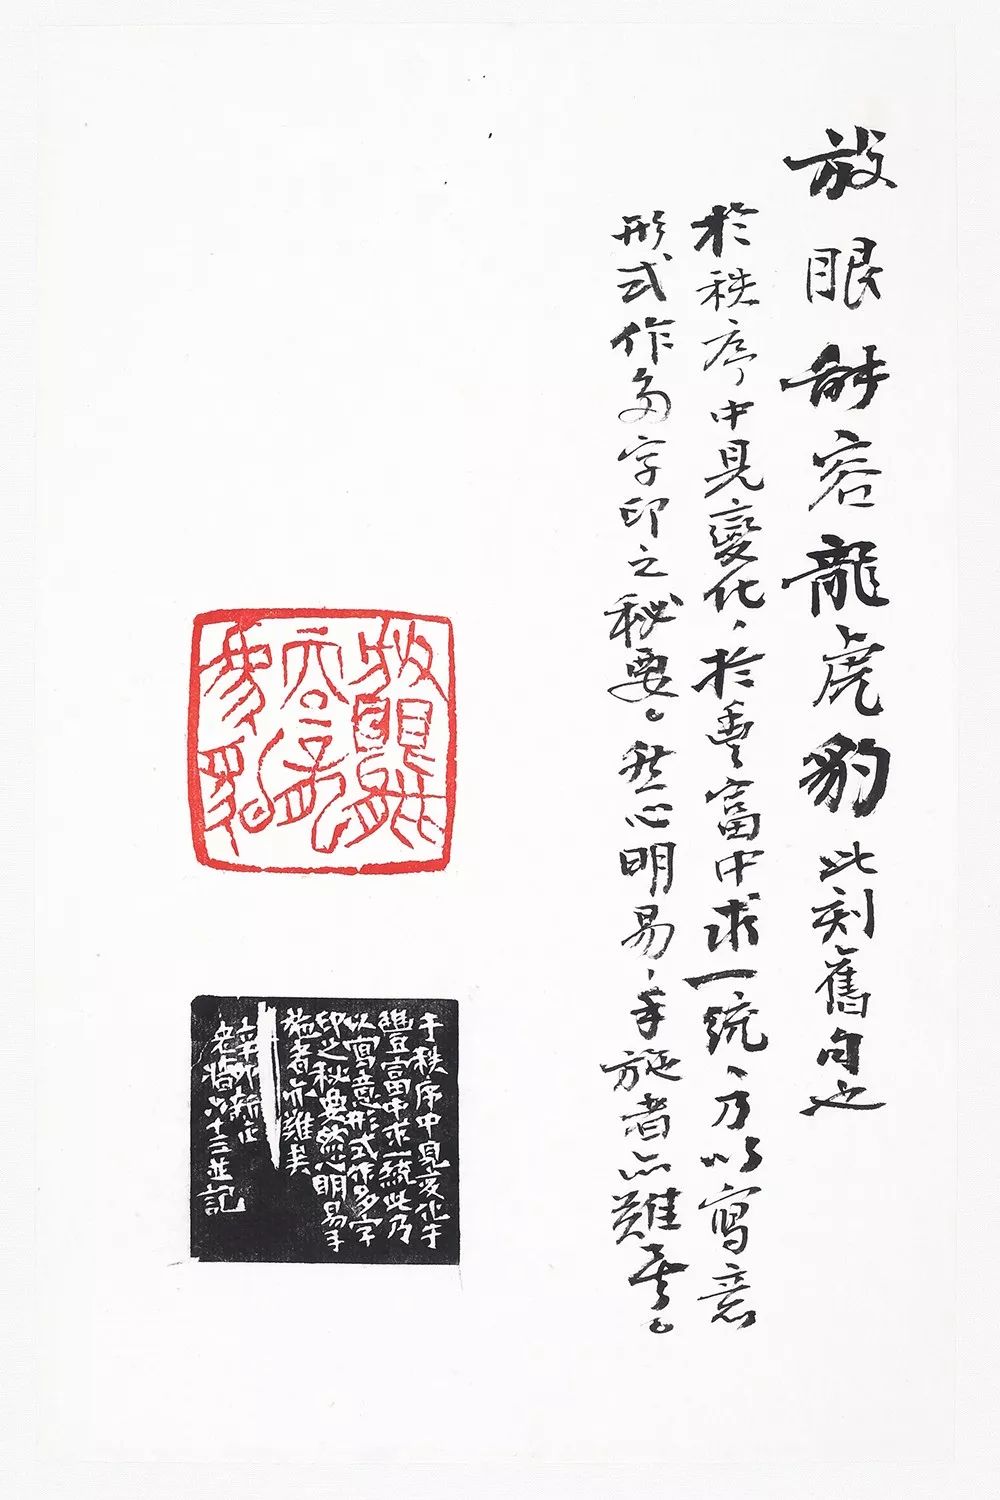 放眼能容龍虎豹此刻舊句也
於秩序中見變化,於豐富中求一統,乃以寫意
形式作多字印之秘要。然心明易,手施者亦難矣。
放眼能容龍虎豹
于秩序中見变化于
豐富中求一統此乃
以寫意形式作多字
印之秘要然心明易手
施者亦難矣
辛卯
六十三並記